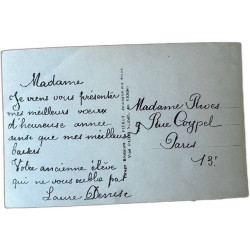 Madame
Je viens vous présenter
mes meilleurs voeux
d'heureuse année
ainsi que mes meilleurs
baisers
Votre ancienne élève
qui ne vous oublie pas
Laure Denise
Madame Rives
9 Rue Coypel
Paris
13e